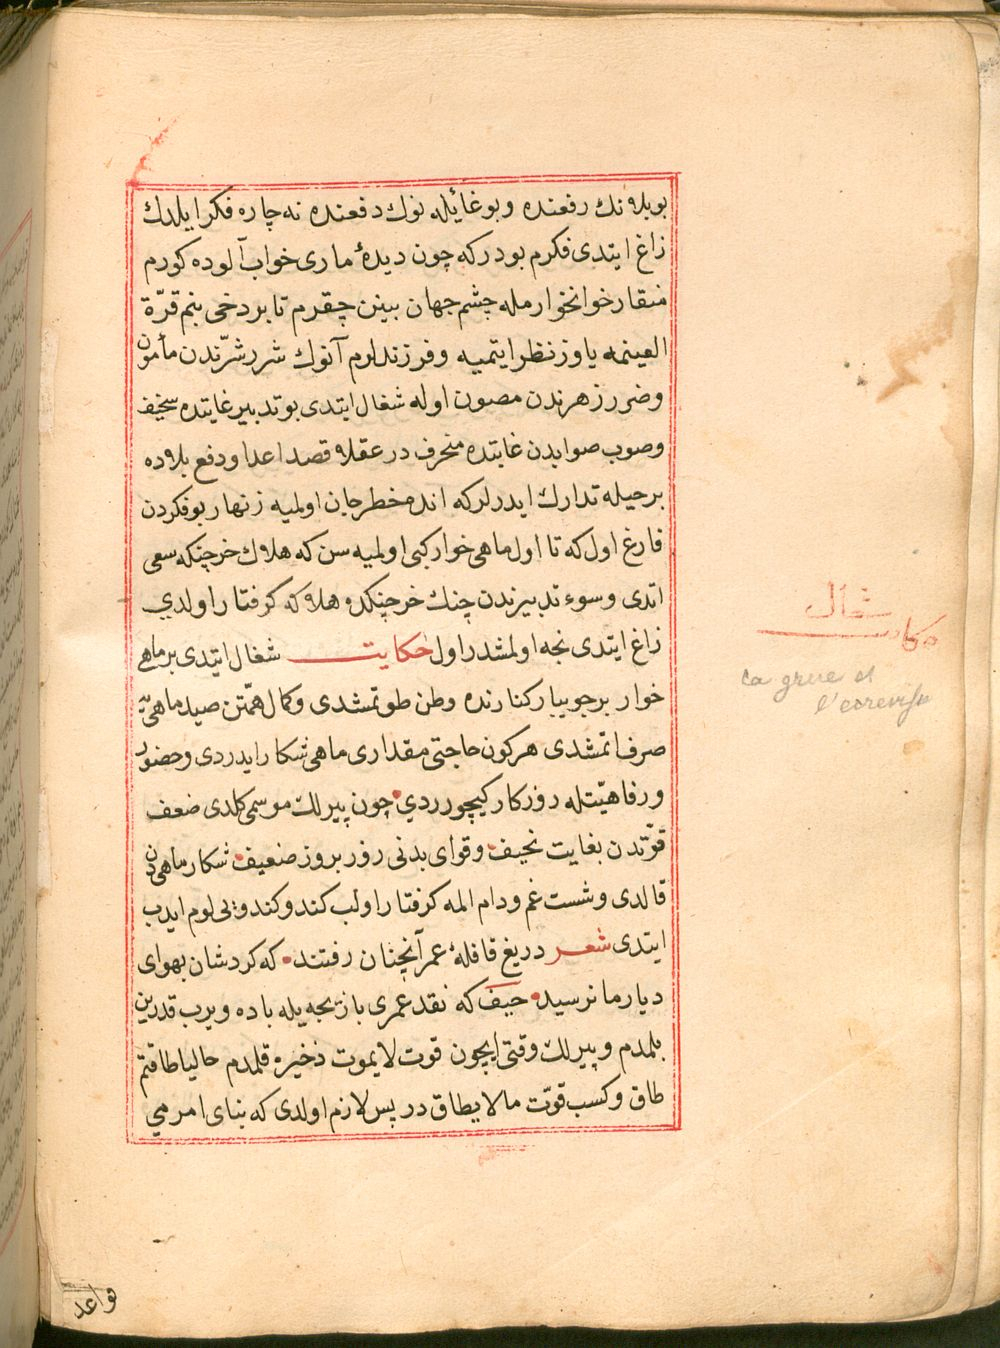 بوبلانك رفعنده وبوغائله نوك دفعنده نه چاره فكر ايلدك
زاغ ايتدى فكرم بودركه چون ديدۀ مارى خواب آلوده كورم
منقار خوانخوارمله چشم جهان بينن چقرم تا بردخى بنم قرّة
العينمه ياوز نظر ايتميه وفرزندلرم آنوك شررشرّندن مأمون
وضرر زهرندن مصون اوله شغال ايتدى بوتدبير غايتده سخيف
وصوب صوابدن غايتده منحرف در عقلا قصد اعدا ودفع بلاده
برحيله تدارك ايدرلركه انده مخطر جان اولميه زنهار بوفكردن
فارغ اول كه تا اول ماهى خوار كبى اولميه سن كه هلاك خرچنكه سعى
اتدى وسوء تدبيرندن چنك خرچنكده هلاكه كرفتار اولدي
زاغ ايتدى نجه اولمشدر اول حكايت شغال ايتدى بر ماهى
خوار برجويبار كنارنده وطن طوتمشدى وكمال همّتن صيد ماهى يه
صرف اتمشدى هركون حاجتى مقدارى ماهى شكار ايدردى وحضور
ورفاهيّتله روزكار كيچوردي چون پيرلك موسمى كلدى ضعف
قوّتدن بغايت نحيف وقواى بدنى روز بروز ضعيف شكار ماهى دن
قالدى وشست غم ودام المه كرفتار اولب كندو كندويى لوم ايدب
ايتدى شعر دريغ قافلۀ عمر آنچنان رفتند كه كردشان بهواى
ديار ما نرسيد حيف كه نقد عمرى بازيچه يله باده ويرب قدرين
بلمدم وپيرلك وقتى ايچون قوت لايموت ذخيره قلمدم حاليا طاقتم
طاق وكسب قوّت ما لايطاق در پس لازم اولدى كه بناى امرمي
شغال
حكايت
la grue et
l'ecrevisse
قواعد